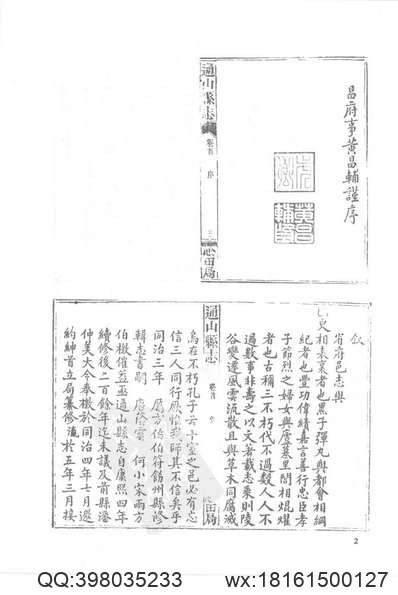 昌府事黃昌輔謹序
黃昌
輔印
通山縣志
卷首 序
心田局
敘
省府邑志與
史相表裏者也黑子彈丸與都會相綱
紀者也豐功偉績嘉言善行忠臣孝
子節烈之婦女與廬墓里閈相焜燿
者也古稱三不朽代不過數人人不
過數事非壽之以文著載志乘則陵
谷變遷風雲流散且與草木同腐滅
通山縣志
卷首 序
心田局
烏在不朽孔子云十室之邑必有忠
信三人同行厥有我師其不信矣乎
同治三年 方伯符飭州縣修
輯志書嗣 唐蔭雲 何小宋兩方
伯檄催益亟通山縣志自康熙四年
續修後二百餘年迄未議及前縣潘
仲芙大令奉檄於同治四年七月邀
約紳首立局纂修 於五年三月接
2
QQ:398035233
wx:18161500127